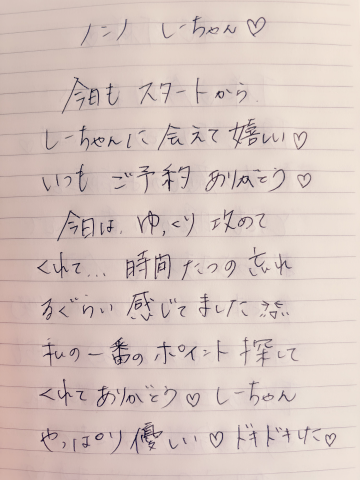 ノンノ しーちゃん♡
今日も スタートから
しーちゃんに 会えて 嬉しい♡
いつも ご予約 ありがとう♡
今日は、ゆっくり 攻めて
くれて... 時間 たつの 忘れ
るぐらい 感じてました
私の一番の ポイント 探して
くれて ありがとう♡ しーちゃん
やっぱり 優しい♡ ドキドキした♡